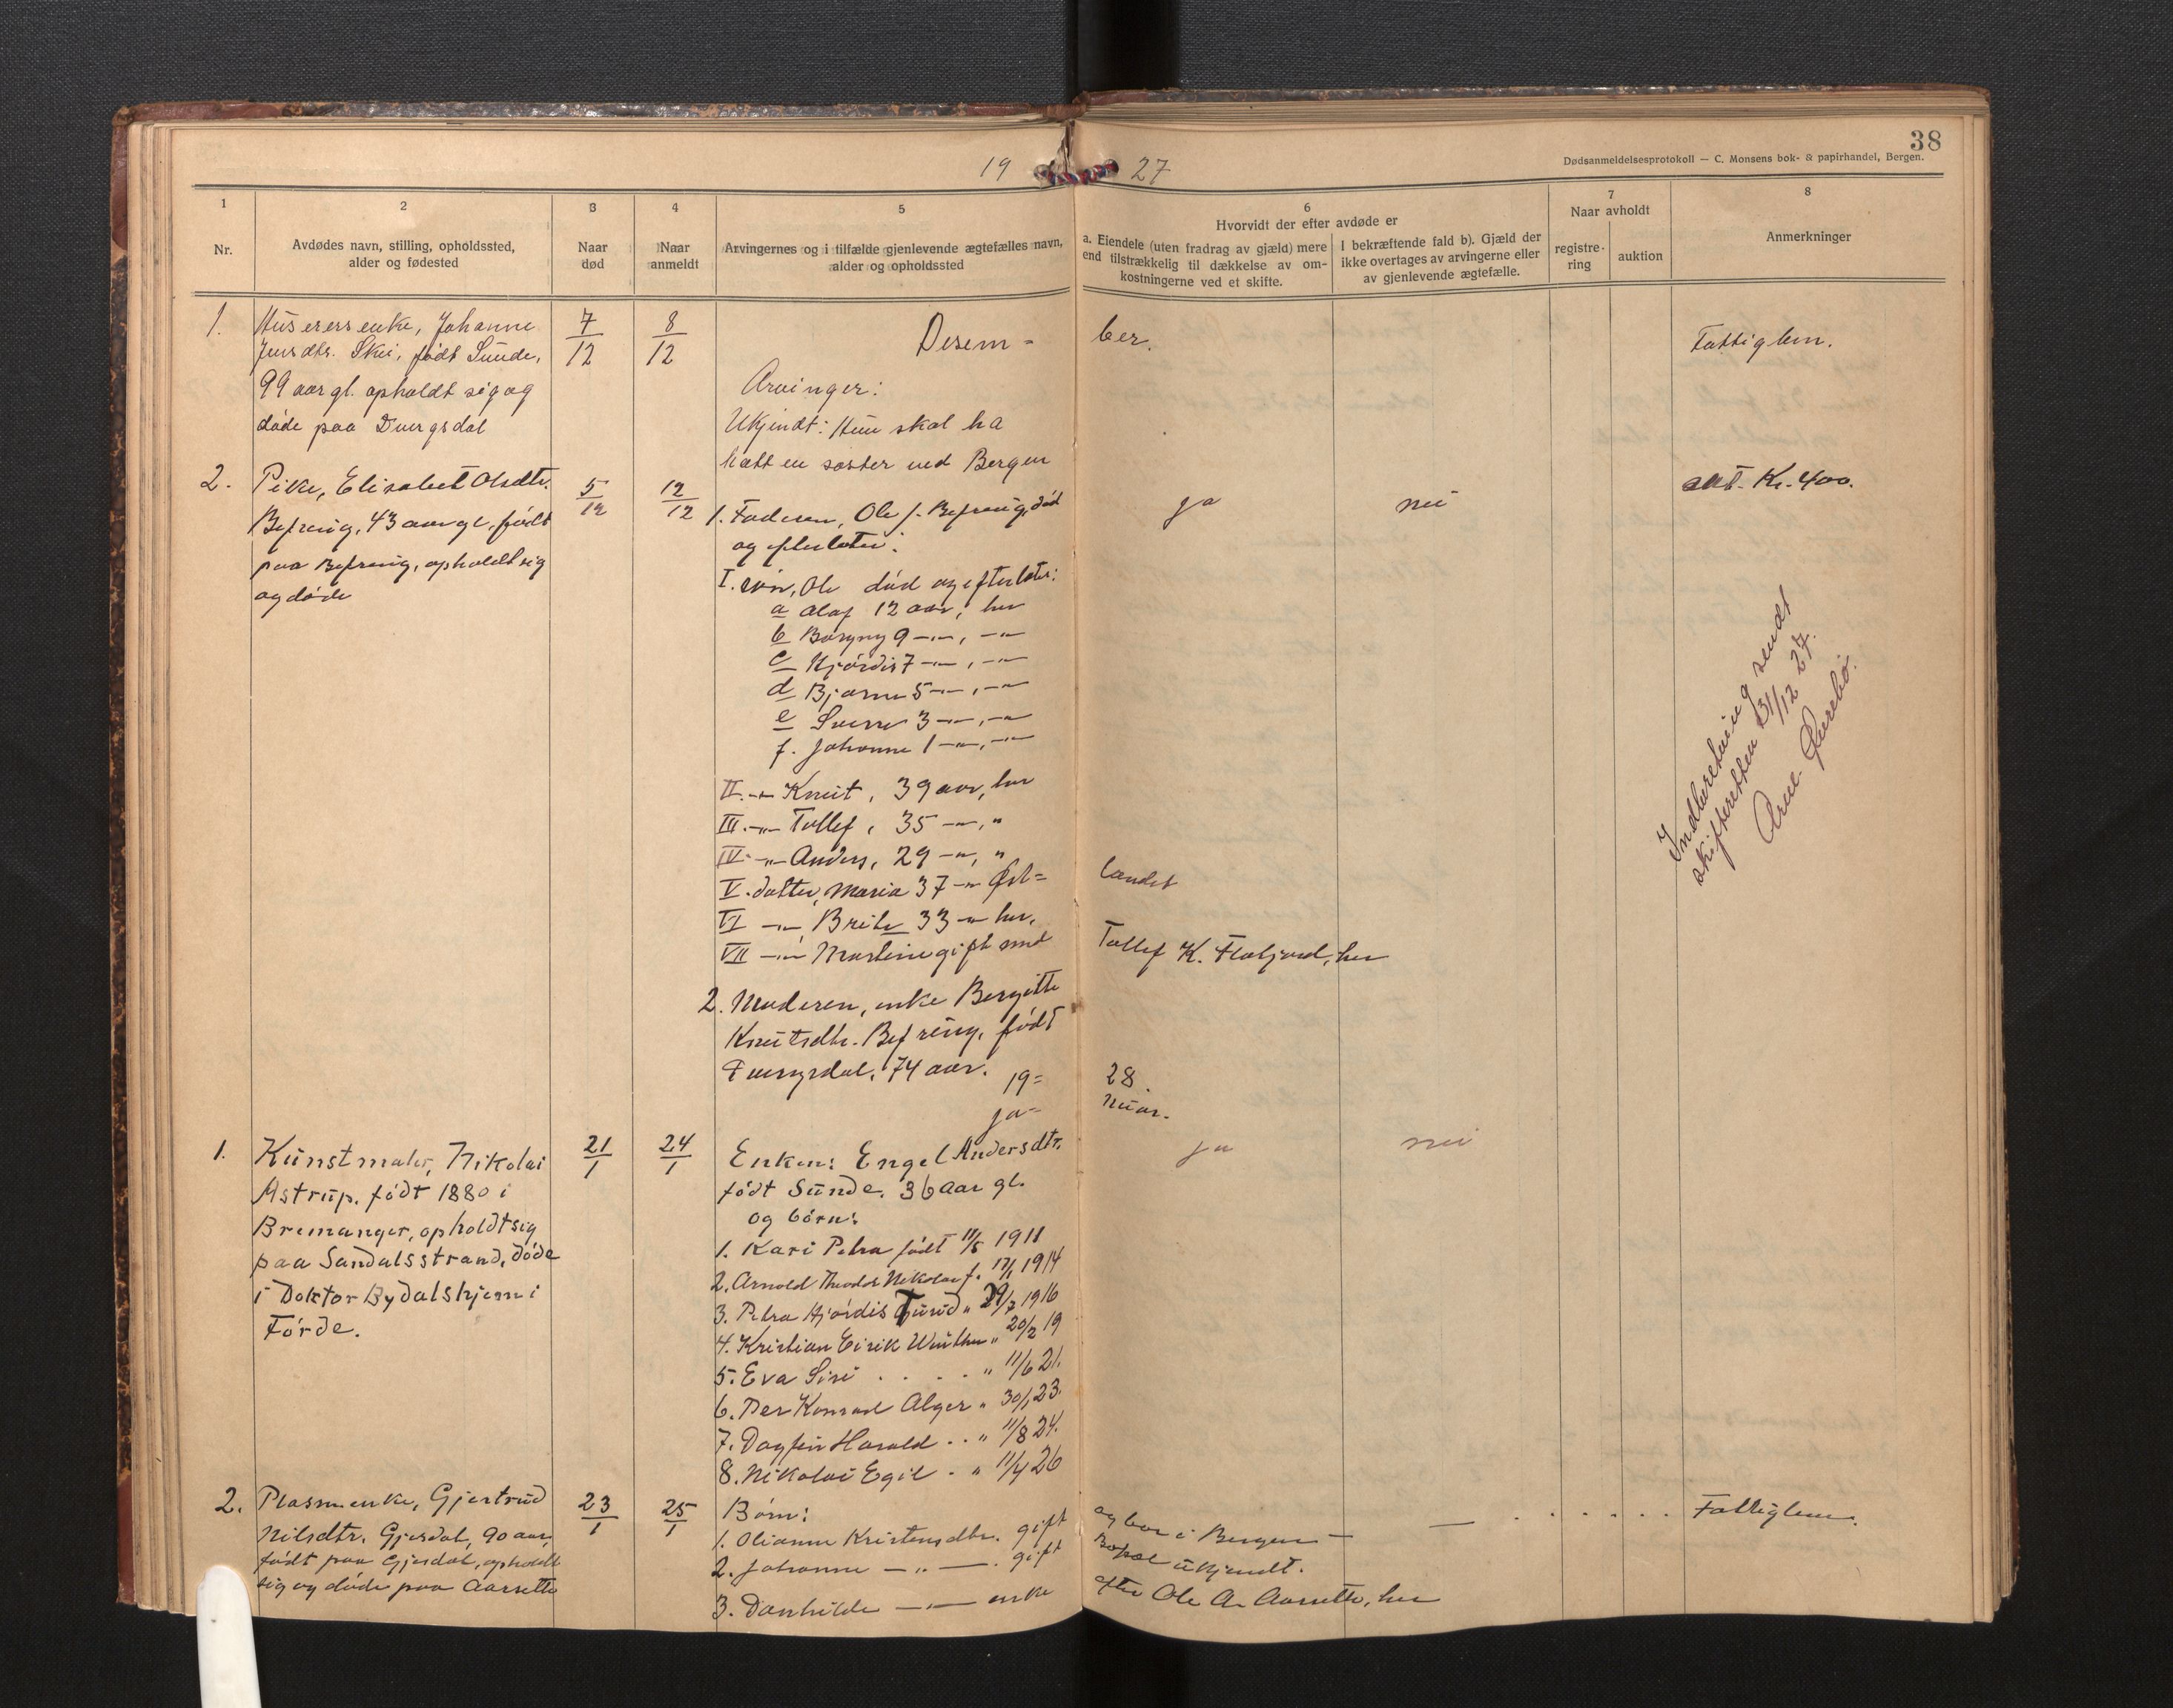 38
Dødsanmeldelsesprotokoll — C. Monsens bok- & papirhandel, Bergen.
19 27
1
Nr.
2
Avdødes navn, stilling, opholdssted,
alder og fødested
3
Naar
død
4
Naar
anmeldt
5
Arvingernes og i tilfælde gjenlevende ægtefælles navn,
alder og opholdssted
6
Hvorvidt der efter avdøde er
a. Eiendele (uten fradrag av gjæld) mere
end tilstrækkelig til dækkelse av om-
kostningerne ved et skifte.
I bekræftende fald b). Gjæld der
ikke overtages av arvingerne eller
av gjenlevende ægtefælle.
7
Naar avholdt
registre-
ring
auktion
8
Anmerkninger
Desem- ber.
1.
Huserersenke, Johanne
Jensdtr. Skei, født Sunde,
99 aar gl. opholdt sig og
døde paa Dvergsdal
7/12
8/12
Arvinger:
Ukjendt: Hun skal ha
hatt en søster ved Bergen
Fattiglem.
2.
Pike, Elisabet Olsdtr.
Befring, 43 aar gl, født
paa Befring, opholdt sig
og døde
5/12
12/12
1. Faderen, Ole J. Befring, død
og efterlater:
I. søn, Ole død og efterlater:
a Olaf 12 aar, her
b Borgny 9 —"—, —"—
c Hjørdis 7 —"—, —"—
d Bjarne 5 —"—, —"—
e Sverre 3 —"—, —"—
f. Johanne 1 —"—, —"—
II. —"— Knut, 39 aar, her
III. —"— Tollef, 35 —"—, "
IV. —"— Anders, 29 —"—, "
V. datter, Maria 37 —"— Øst= landet
VI —"— Brite 33 —"— her.
VII —"— Martine gift med Tollef K. Flatjord, her
2. Moderen, enke Bergitte
Knutsdtr. Befring, født
Dvergsdal, 74 aar.
ja
nei
Kr. 400.
Indberetning sendt
skifteretten 31/12 27.
Arne
19= 28.
ja- nuar.
1.
Kunstmaler, Nikolai
Astrup, født 1880 i
Bremanger, opholdt sig
paa Sandalsstrand, døde
i Doktor Bydalshjem i
Førde.
21/1
24/1
Enken: Engel Andersdtr.
født Sunde, 36 aar gl.
og børn:
1. Kari Petra født 11/5 1911
2. Arnold Theodor Nikolai f. 17/1 1914
3. Petra Hjørdis Turid " 29/7 1916
4. Kristian Eirik Winther " 20/2 19
5. Eva Siri . . . . " 11/6 21.
6. Per Konrad Alger " 30/1 23.
7. Dagfin Harald . . " 11/8 24.
8. Nikolai Egil . " 11/4 26
ja
nei
2.
Plassmenke, Gjertrud
Nilsdtr. Gjesdal, 90 aar,
født paa Gjesdal, opholdt
sig og døde paa Aarsette
23/1
25/1
Børn:
1. Olianne Kristensdtr. gift og bor i Bergen —
2. Johanne —"— . gift Bopæl ukjendt.
3. Danhilde —"— enke efter Ole A. Aarsette, her
— . . . . . .
Fattiglem.